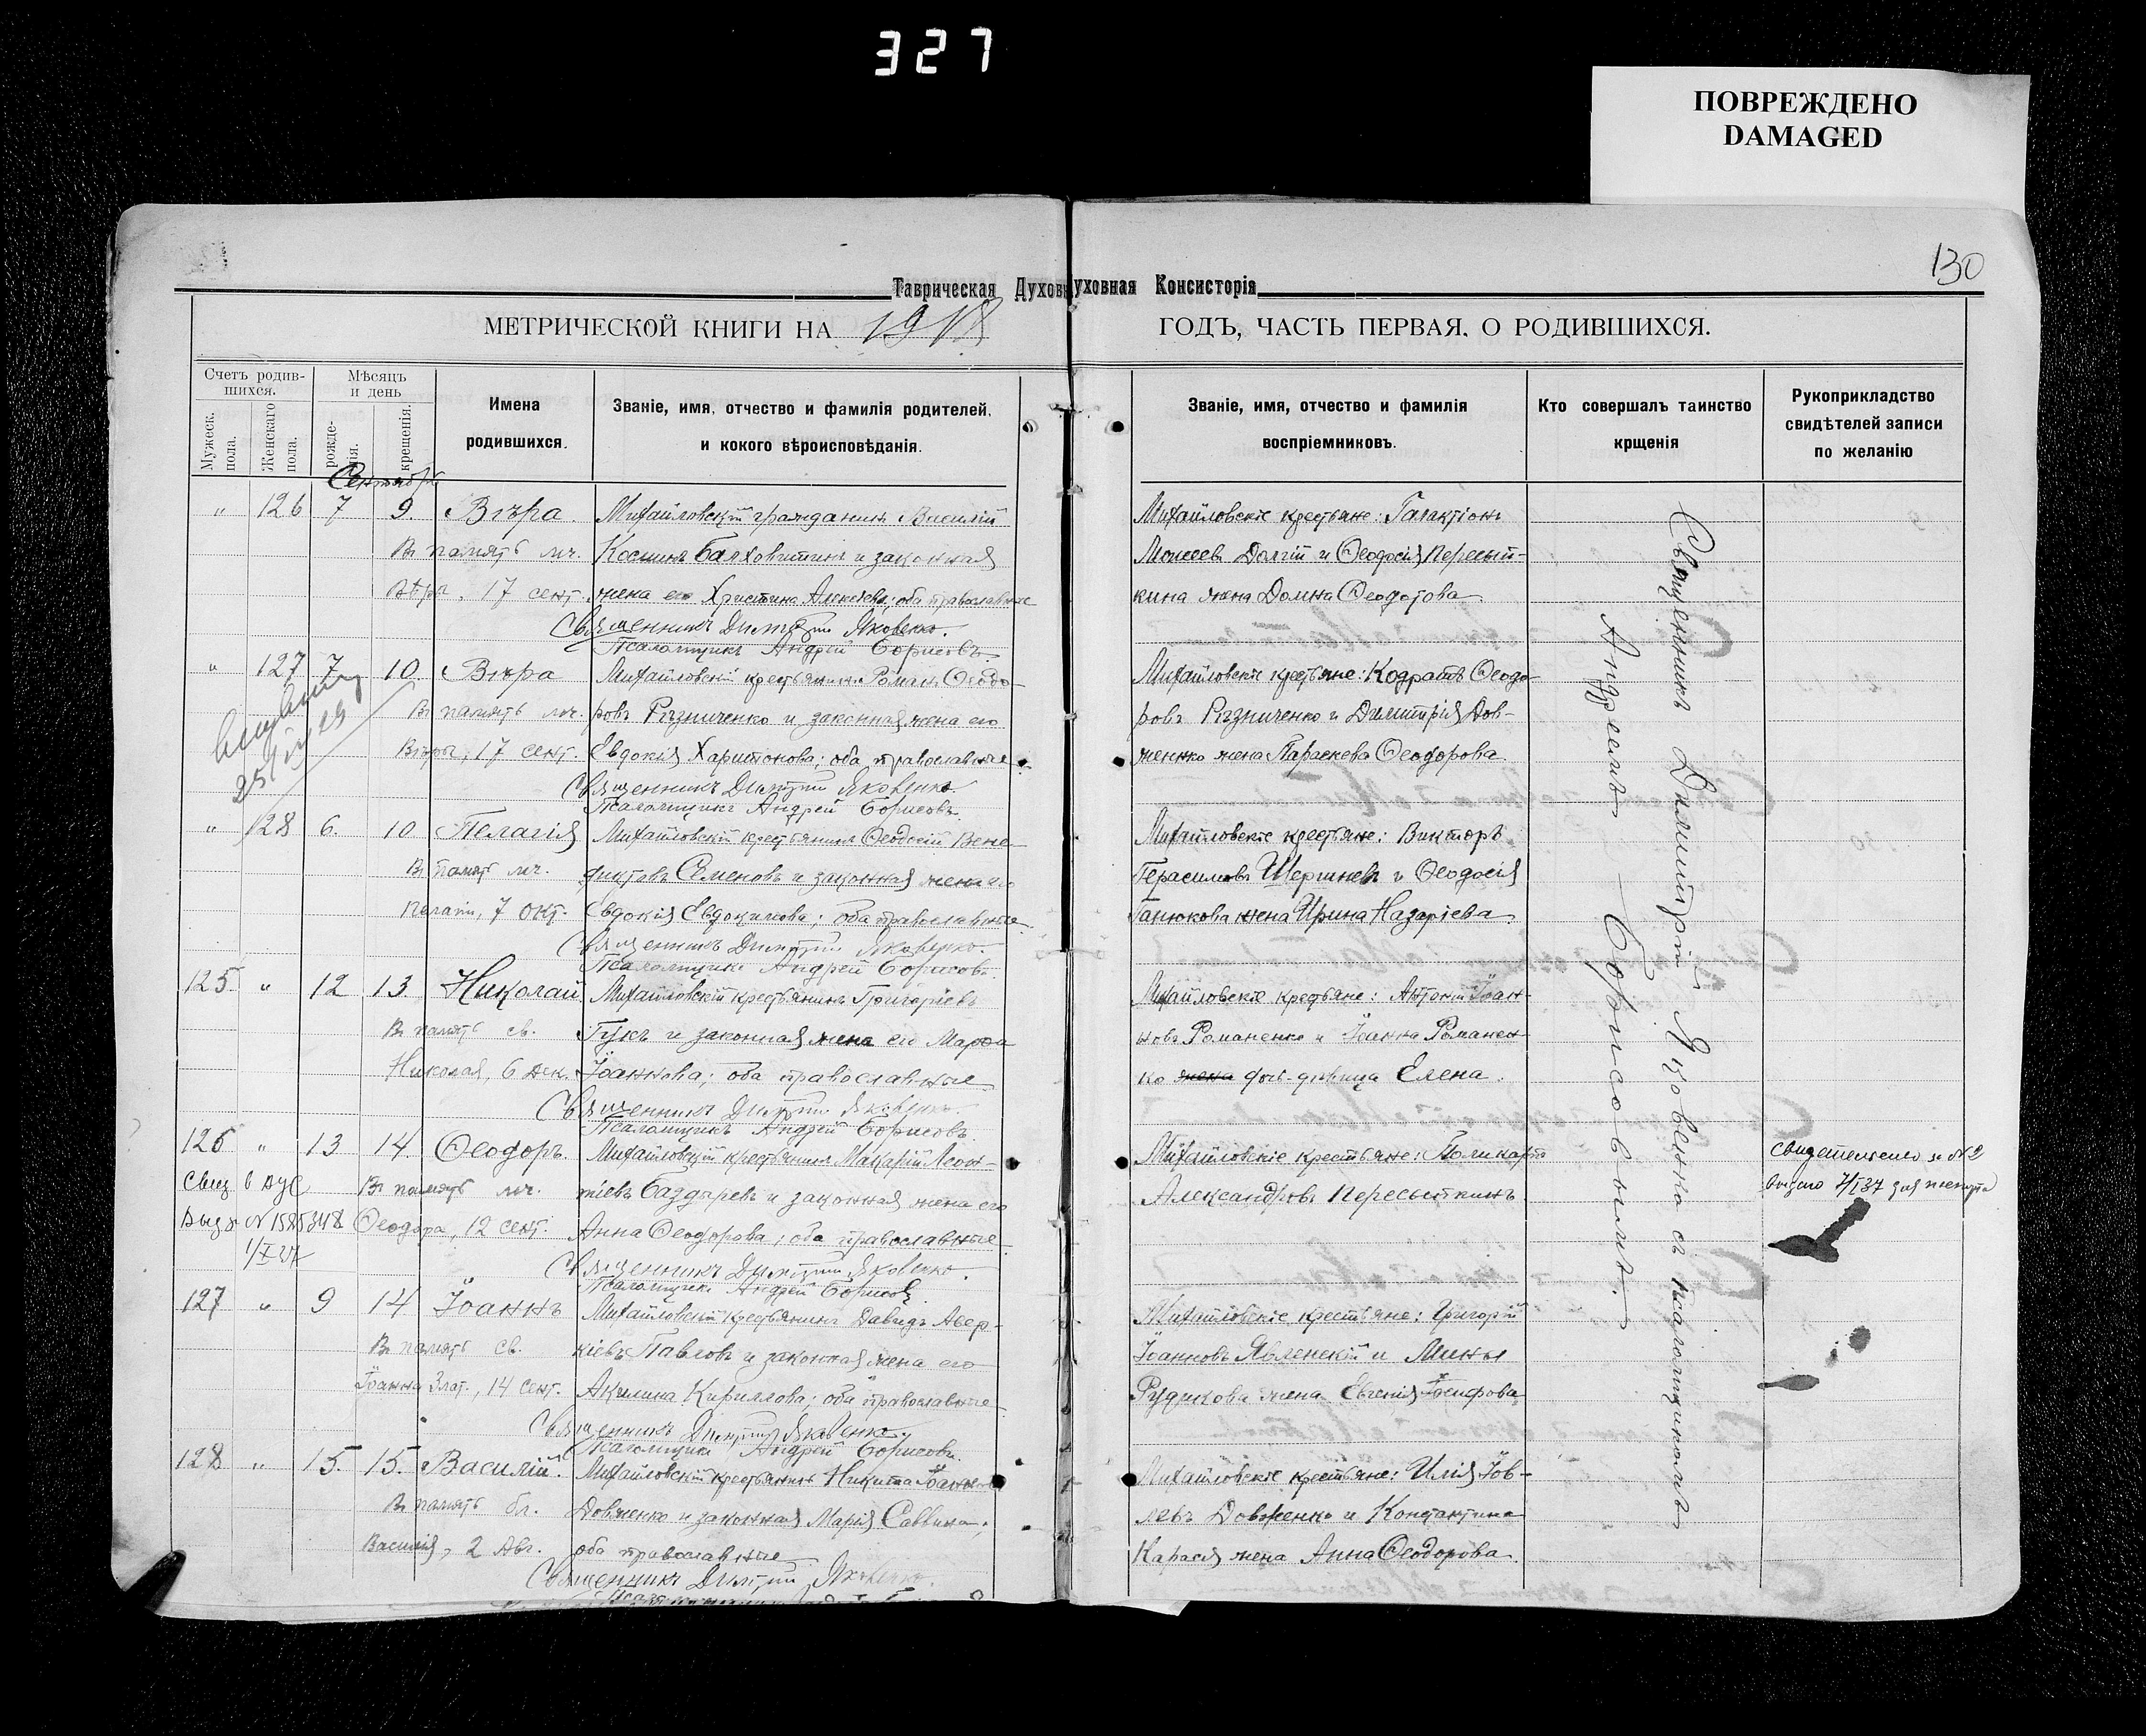 327
ПОВРЕЖДЕНО
DAMAGED
130
Таврическая Духовн
уховная Консисторія
МЕТРИЧЕСКОЙ КНИГИ НА 1918
ГОДЪ, ЧАСТЬ ПЕРВАЯ, О РОДИВШИХСЯ.
Счетъ родив-
шихся.
Мужеск.
пола.
Женскаго
пола.
Мѣсяцъ
и день
рожде-
нія.
крещенія.
Имена
родившихся.
Званіе, имя, отчество и фамилія родителей,
и кокого вѣроисповѣданія.
Званіе, имя, отчество и фамилія
воспріемниковъ.
Кто совершалъ таинство
крщенія
Рукоприкладство
свидѣтелей записи
по желанію
Сентябр
" 126 7 9. Вѣра. Михайловскій гражданинъ Василій
Въ память мч. Космин и законная
Вѣры, 17 сент. жена его Христина Алексѣева; оба православные
Священникъ Димитрій Яковенко.
Псаломщикъ Андрей Борисовъ.
Михайловскіе крестьяне: Галактіонъ
Моисеевъ Долгій и Ѳеодосія Пересып-
кина жена Домна Ѳеодотова
" 127 7 10. Вѣра Михайловскій крестьянинъ Романъ Ѳеодо-
Въ память мч. ровъ Рѣзниченко и законная жена его
Вѣры, 17 сент. Евдокія Харитонова; оба православные
25/IV 29
Священникъ Димитрій Яковенко.
Псаломщикъ Андрей Борисовъ.
Михайловскіе крестьяне: Кодратъ Ѳеодо-
ровъ Рѣзниченко и Димитрія Дов-
женко жена Параскева Ѳеодорова.
" 128 6. 10 Пелагія Михайловскій крестьянинъ Ѳеодосій Вене-
Въ память мч. диктовъ Семеновъ и законная жена его
Пелагіи, 7 окт. Евдокія Евдокимова; оба православные.
Священникъ Димитрій Яковенко.
Псаломщикъ Андрей Борисовъ.
Михайловскіе крестьяне: Викторъ
Герасимовъ и Ѳеодосія
Ганюкова жена Ирина Назаріева.
125. " 12 13 Николай Михайловскій крестьянинъ Григоріевъ
Въ память св. Гукъ и законная жена его Марѳа
Николая, 6 дек. Іоаннова; оба православные
Священникъ Димитрій Яковенко.
Псаломщикъ Андрей Борисовъ.
Михайловскіе крестьяне: Антоній Іоан-
новъ Романенко и Іоанна Романен-
ко жена дочь-дѣвица Елена.
126 " 13 14. Ѳеодоръ Михайловскій крестьянинъ Макарій Леон-
Въ память мч. тіевъ Баздыревъ и законная жена его
Ѳеодора, 12 сент. Анна Ѳеодорова; оба православные
1/X 27
Священникъ Димитрій Яковенко.
Псаломщикъ Андрей Борисовъ.
Михайловскіе крестьяне: Поликарпъ
Александровъ Пересыпкинъ
выдано 7/I 37 для паспорта
127 " 9 14 Іоаннъ Михайловскій крестьянинъ Давидъ Авер-
Въ память св. кіевъ Павловъ и законная жена его
Іоанна Злат., 14 сент. Акилина Кириллова; оба православные
Священникъ Димитрій Яковенко.
Псаломщикъ Андрей Борисовъ.
Михайловскіе крестьяне: Григорій
Іоанновъ Явленскій и Мины
Рудикова жена Евгенія Іосифова
128 " 15. 15. Василій. Михайловскій крестьянинъ Никита Іоанновъ
Въ память бл. Довженко и законная Марія Саввина;
Василія, 2 Авг. оба православные
Священникъ Димитрій Яковенко.
Михайловскіе крестьяне: Илія Іов-
левъ Довженко и Константина
Карася жена Анна Ѳеодорова.
Священникъ Димитрій Яковенко съ псаломщикомъ
Андреемъ Борисовымъ.